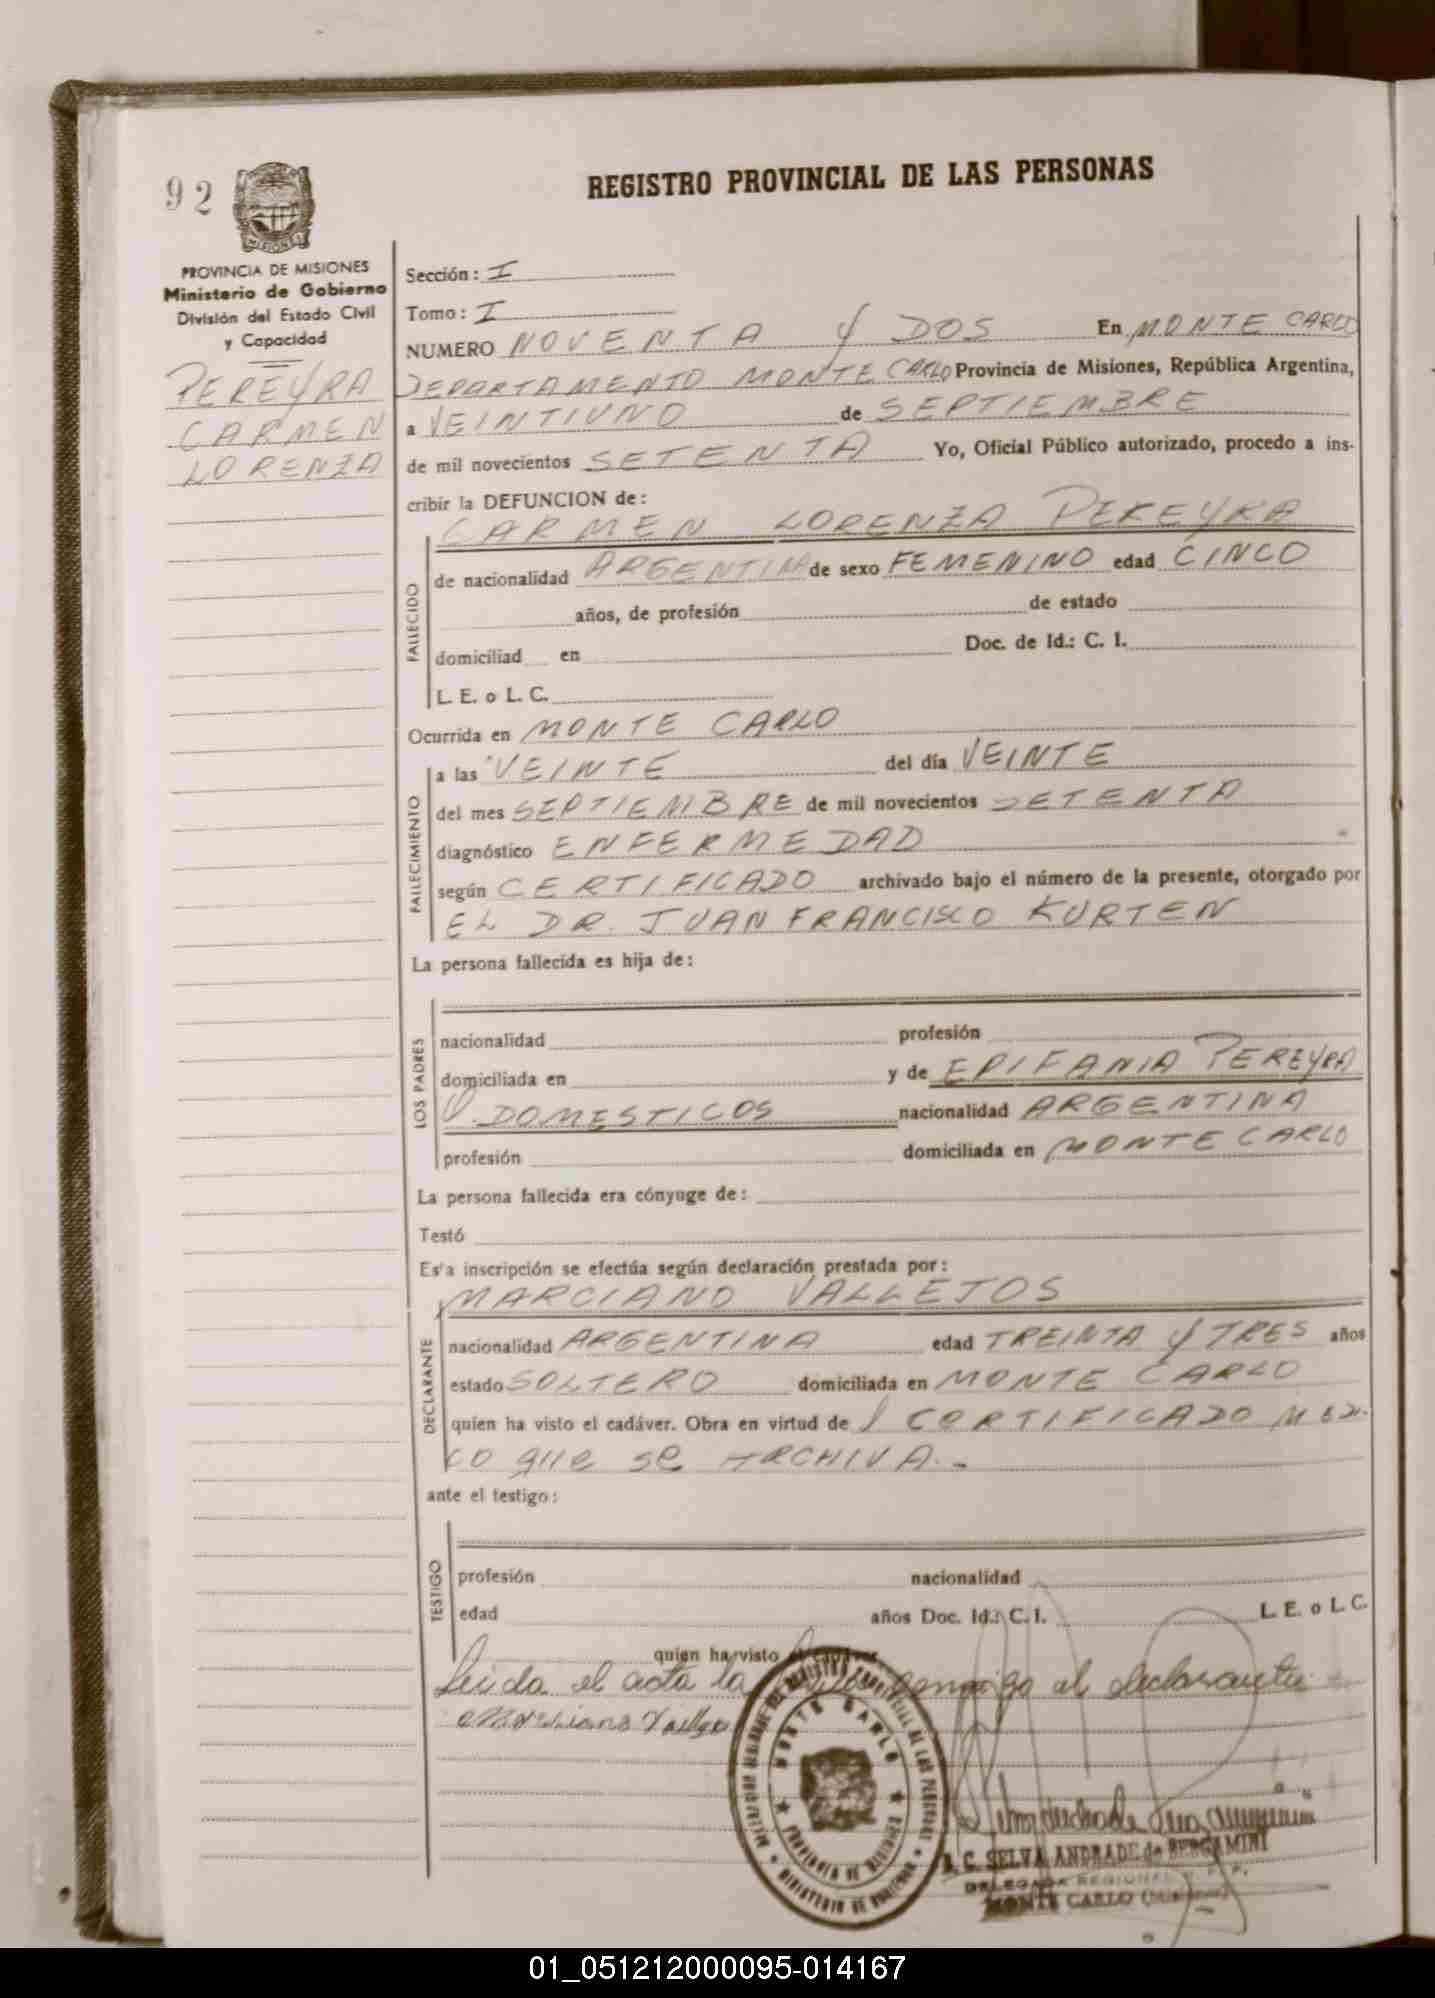 92
MISIONES
PROVINCIA DE MISIONES
Ministerio de Gobierno
División del Estado Civil
y Capacidad
PEREYRA
CARMEN
LORENZA
REGISTRO PROVINCIAL DE LAS PERSONAS
Sección: I
Tomo: I
NUMERO NOVENTA Y DOS En MONTE CARLO
DEPARTAMENTO MONTE CARLO Provincia de Misiones, República Argentina,
a VEINTIUNO de SEPTIEMBRE
de mil novecientos SETENTA Yo, Oficial Público autorizado, procedo a ins-
cribir la DEFUNCION de:
CARMEN LORENZA PEREYRA
FALLECIDO
de nacionalidad ARGENTINA de sexo FEMENINO edad CINCO
años, de profesión de estado
domiciliad en Doc. de Id.: C. I.
L. E. o L. C.
Ocurrida en MONTE CARLO
FALLECIMIENTO
a las VEINTE del día VEINTE
del mes SEPTIEMBRE de mil novecientos SETENTA
diagnóstico ENFERMEDAD
según CERTIFICADO archivado bajo el número de la presente, otorgado por
EL DR. JUAN FRANCISCO KURTEN
La persona fallecida es hija de:
LOS PADRES
nacionalidad profesión
domiciliada en y de EPIFANIA PEREYRA
Q. DOMESTICOS nacionalidad ARGENTINA
profesión domiciliada en MONTE CARLO
La persona fallecida era cónyuge de:
Testó
Esta inscripción se efectúa según declaración prestada por:
MARCIANO VALLEJOS
DECLARANTE
nacionalidad ARGENTINA edad TREINTA Y TRES años
estado SOLTERO domiciliada en MONTE CARLO
quien ha visto el cadáver. Obra en virtud de 1 CERTIFICADO MEDI-
CO que se ARCHIVA.-
ante el testigo:
TESTIGO
profesión nacionalidad
edad años Doc. Id.: C. I. L. E. o L. C.
quien ha visto el cadáver
Leida el acta la conmigo al declarante
Marciano Vallejo
MONTE CARLO
PROVINCIA DE MISIONES
MINISTERIO DE GOBIERNO
C. SELVA ANDRADE de BERGAMINI
DELEGADA REGIONAL R. P. P.
MONTE CARLO (Misiones)
01_051212000095-014167